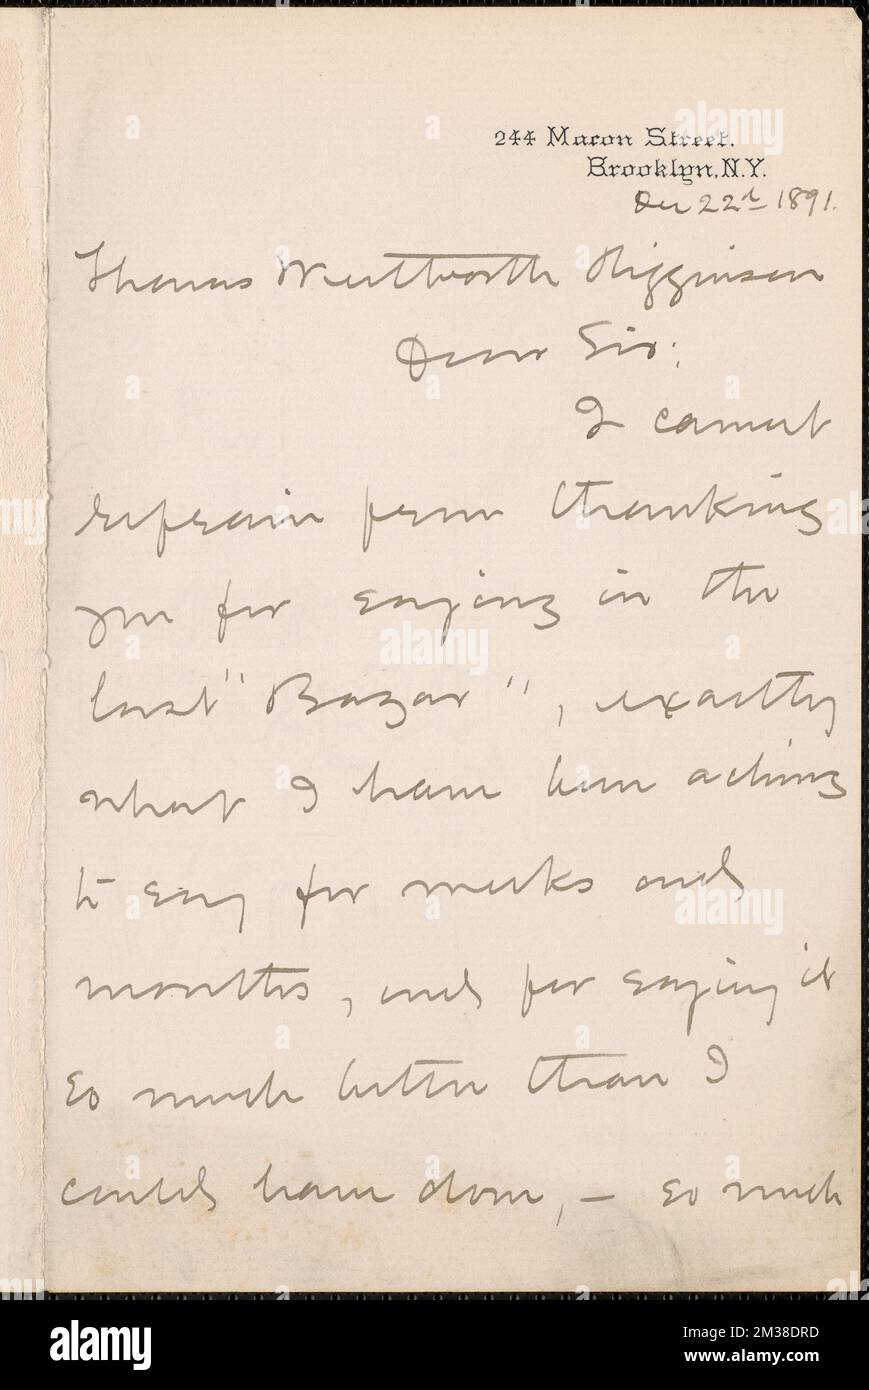 244 Macon Street.
Brooklyn, N.Y.
Dec 22d 1891.
Thomas Wentworth Higginson
Dear Sir:
I cannot
refrain from thanking
you for saying in the
last "Bazar", exactly
what I have been aching
to say for weeks and
months, and for saying it
so much better than I
could have done, — so much
alamy
Image ID: 2M38DRD
www.alamy.com